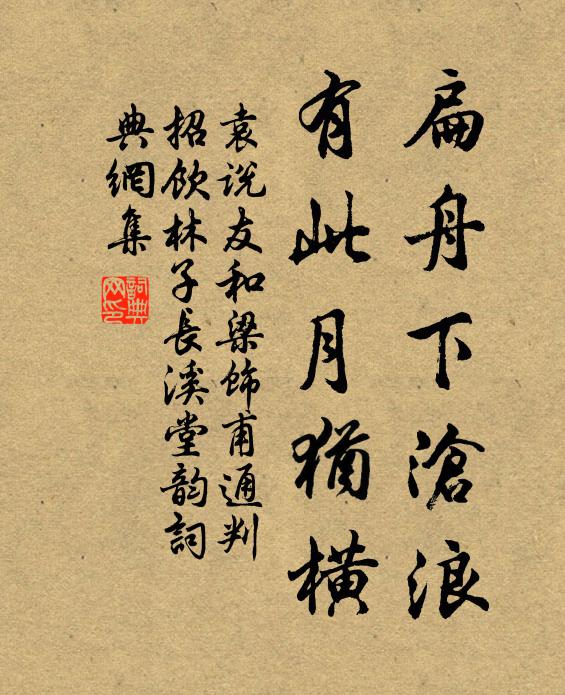 扁舟下滄浪
有此月猶橫
袁说友和梁飾甫通判
招飲林子長溪堂韵詞
典網集
詞典
网印